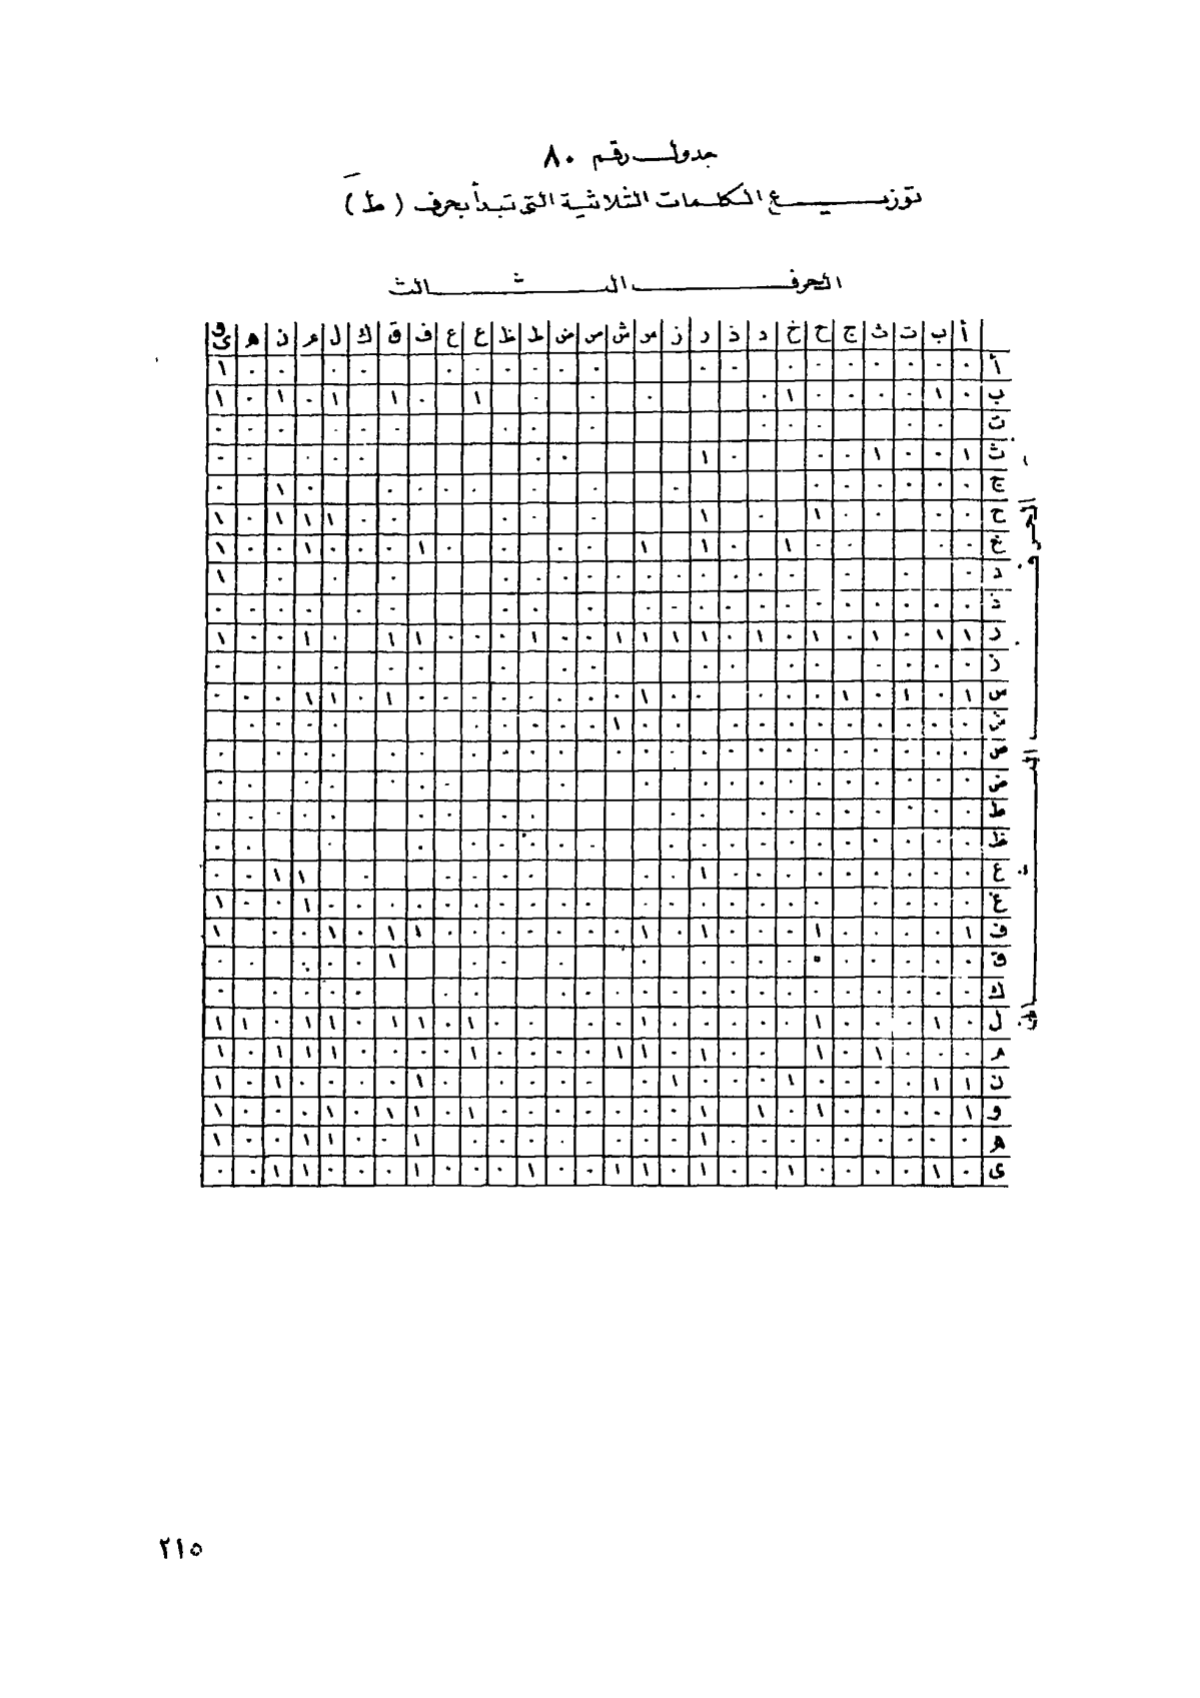 جدول رقم ٨٠
توزيع الكلمات الثلاثية التى تبدأ بحرف (ط)
الحرف الثالث
أ ب ت ث ج ح خ د ذ ر ز س ش ص ض ط ظ ع غ ف ق ك ل م ن ه و ى
الحرف الثانى
أ ٠ ٠ ٠ ٠ ٠ ٠ ٠ ٠ ٠ ٠ ٠ ٠ ٠ ٠ ٠ ٠ ٠ ٠ ٠ ١
ب ٠ ١ ٠ ٠ ٠ ٠ ١ ٠ ٠ ٠ ٠ ١ ٠ ١ ١ ٠ ١ ٠ ١
ت ٠ ٠ ٠ ٠ ٠ ٠ ٠ ٠ ٠ ٠ ٠ ٠ ٠ ٠
ث ١ ٠ ٠ ١ ٠ ٠ ٠ ١ ٠ ٠ ٠ ٠ ٠ ٠ ٠
ج ٠ ٠ ٠ ٠ ٠ ٠ ٠ ٠ ٠ ٠ ٠ ٠ ٠ ٠ ١ ٠
ح ٠ ٠ ٠ ٠ ١ ٠ ١ ٠ ٠ ٠ ٠ ٠ ١ ١ ١ ٠ ١
خ ٠ ٠ ٠ ٠ ١ ٠ ١ ١ ٠ ٠ ٠ ٠ ١ ٠ ٠ ٠ ١ ٠ ٠ ١
د ٠ ٠ ٠ ٠ ٠ ٠ ٠ ٠ ٠ ٠ ٠ ٠ ٠ ٠ ٠ ٠ ٠ ١
ذ ٠ ٠ ٠ ٠ ٠ ٠ ٠ ٠ ٠ ٠ ٠ ٠ ٠ ٠ ٠ ٠ ٠ ٠ ٠ ٠ ٠ ٠
ر ١ ١ ٠ ١ ٠ ١ ٠ ١ ٠ ١ ١ ١ ١ ٠ ٠ ١ ٠ ٠ ٠ ١ ١ ٠ ١ ٠ ٠ ١
ز ٠ ٠ ٠ ٠ ٠ ٠ ٠ ٠ ٠ ٠ ٠ ٠ ٠ ٠ ٠ ٠
س ١ ٠ ١ ٠ ١ ٠ ٠ ٠ ٠ ٠ ١ ٠ ٠ ٠ ٠ ٠ ٠ ٠ ٠ ١ ٠ ١ ١ ٠ ٠ ٠
ش ٠ ٠ ٠ ٠ ٠ ٠ ٠ ٠ ٠ ٠ ١ ٠ ٠ ٠ ٠ ٠ ٠ ٠ ٠ ٠
ص ٠ ٠ ٠ ٠ ٠ ٠ ٠ ٠ ٠ ٠ ٠ ٠ ٠ ٠ ٠ ٠ ٠ ٠ ٠ ٠ ٠
ض ٠ ٠ ٠ ٠ ٠ ٠ ٠ ٠ ٠ ٠ ٠ ٠ ٠ ٠ ٠ ٠ ٠ ٠ ٠
ط ٠ ٠ ٠ ٠ ٠ ٠ ٠ ٠ ٠ ٠ ٠ ٠ ٠ ٠ ٠ ٠ ٠ ٠ ٠ ٠
ظ ٠ ٠ ٠ ٠ ٠ ٠ ٠ ٠ ٠ ٠ ٠ ٠ ٠ ٠ ٠ ٠ ٠ ٠ ٠ ٠ ٠
ع ٠ ٠ ٠ ٠ ٠ ٠ ٠ ٠ ٠ ١ ٠ ٠ ٠ ٠ ٠ ٠ ٠ ٠ ١ ١ ٠ ٠
غ ٠ ٠ ٠ ٠ ٠ ٠ ٠ ٠ ٠ ٠ ٠ ٠ ٠ ٠ ٠ ٠ ٠ ٠ ٠ ٠ ٠ ٠ ١ ٠ ٠ ١
ف ١ ٠ ٠ ٠ ٠ ١ ٠ ٠ ٠ ١ ٠ ١ ٠ ٠ ٠ ٠ ٠ ٠ ٠ ١ ١ ٠ ١ ٠ ٠ ١
ق ٠ ٠ ٠ ٠ ٠ ٠ ٠ ٠ ٠ ٠ ٠ ٠ ٠ ٠ ١ ٠ ٠ ٠ ٠ ٠ ٠
ك ٠ ٠ ٠ ٠ ٠ ٠ ٠ ٠ ٠ ٠ ٠ ٠ ٠ ٠ ٠ ٠ ٠ ٠ ٠ ٠ ٠ ٠
ل ٠ ١ ٠ ٠ ٠ ١ ٠ ٠ ٠ ٠ ٠ ١ ٠ ٠ ٠ ١ ٠ ١ ١ ٠ ١ ١ ٠ ١ ١
م ٠ ٠ ٠ ١ ٠ ١ ٠ ٠ ١ ٠ ١ ١ ٠ ٠ ٠ ٠ ١ ٠ ٠ ٠ ٠ ١ ١ ١ ٠ ١
ن ١ ١ ٠ ٠ ٠ ٠ ١ ٠ ٠ ٠ ١ ٠ ٠ ٠ ٠ ٠ ٠ ١ ٠ ٠ ٠ ٠ ١ ٠ ١
و ١ ٠ ٠ ٠ ٠ ١ ٠ ١ ٠ ١ ٠ ٠ ٠ ٠ ٠ ٠ ٠ ١ ٠ ١ ١ ٠ ١ ٠ ٠ ٠ ١
ه ٠ ٠ ٠ ٠ ٠ ٠ ٠ ٠ ٠ ١ ٠ ٠ ٠ ٠ ٠ ٠ ٠ ١ ٠ ٠ ١ ١ ٠ ٠ ١
ى ٠ ١ ٠ ٠ ٠ ٠ ١ ٠ ٠ ١ ٠ ١ ١ ٠ ٠ ١ ٠ ٠ ٠ ١ ٠ ٠ ٠ ١ ١ ٠ ٠
٢١٥